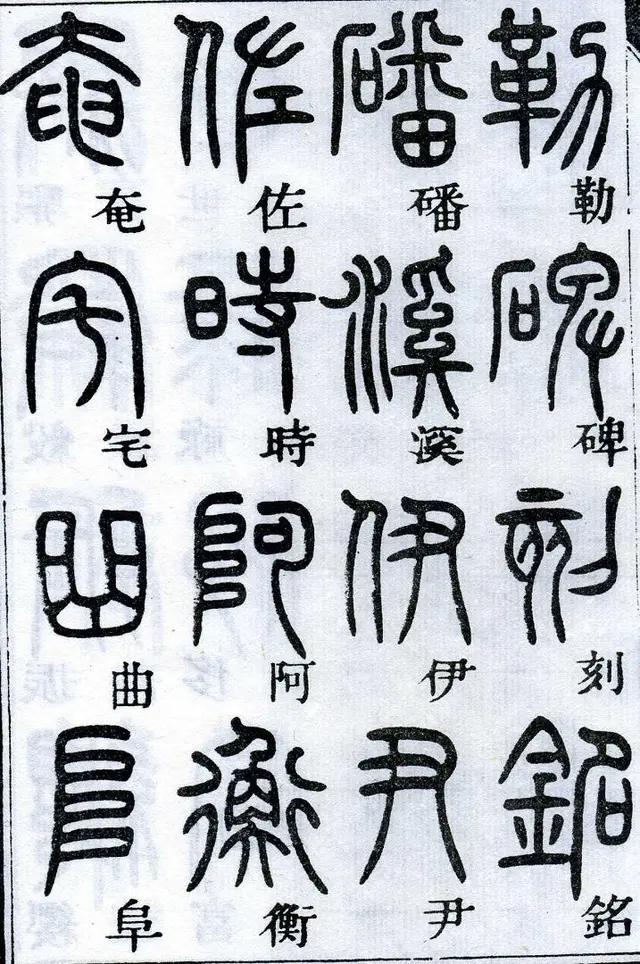 勒勒碑碑刻刻銘銘
磻磻溪溪伊伊尹尹
佐佐時時阿阿衡衡
奄奄宅宅曲曲阜阜